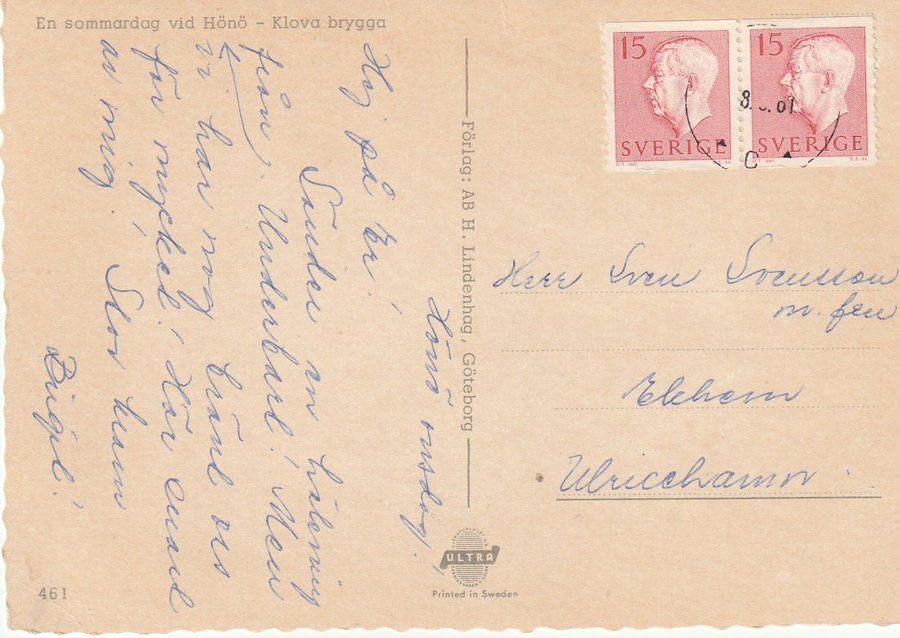 En sommardag vid Hönö – Klova brygga
Hönö onsdag,
Hej på Er!
Sänder en hälsning
från Underbart! Men
vi har nog bränt oss
för mycket! Här
av mig! Stor kram
Birgit!
Förlag: AB H. Lindenhag, Göteborg
15
SVERIGE
15
SVERIGE
C
Herr Sven Svensson
m. fru
Ekhem
Ulricehamn.
ULTRA
Printed in Sweden
461